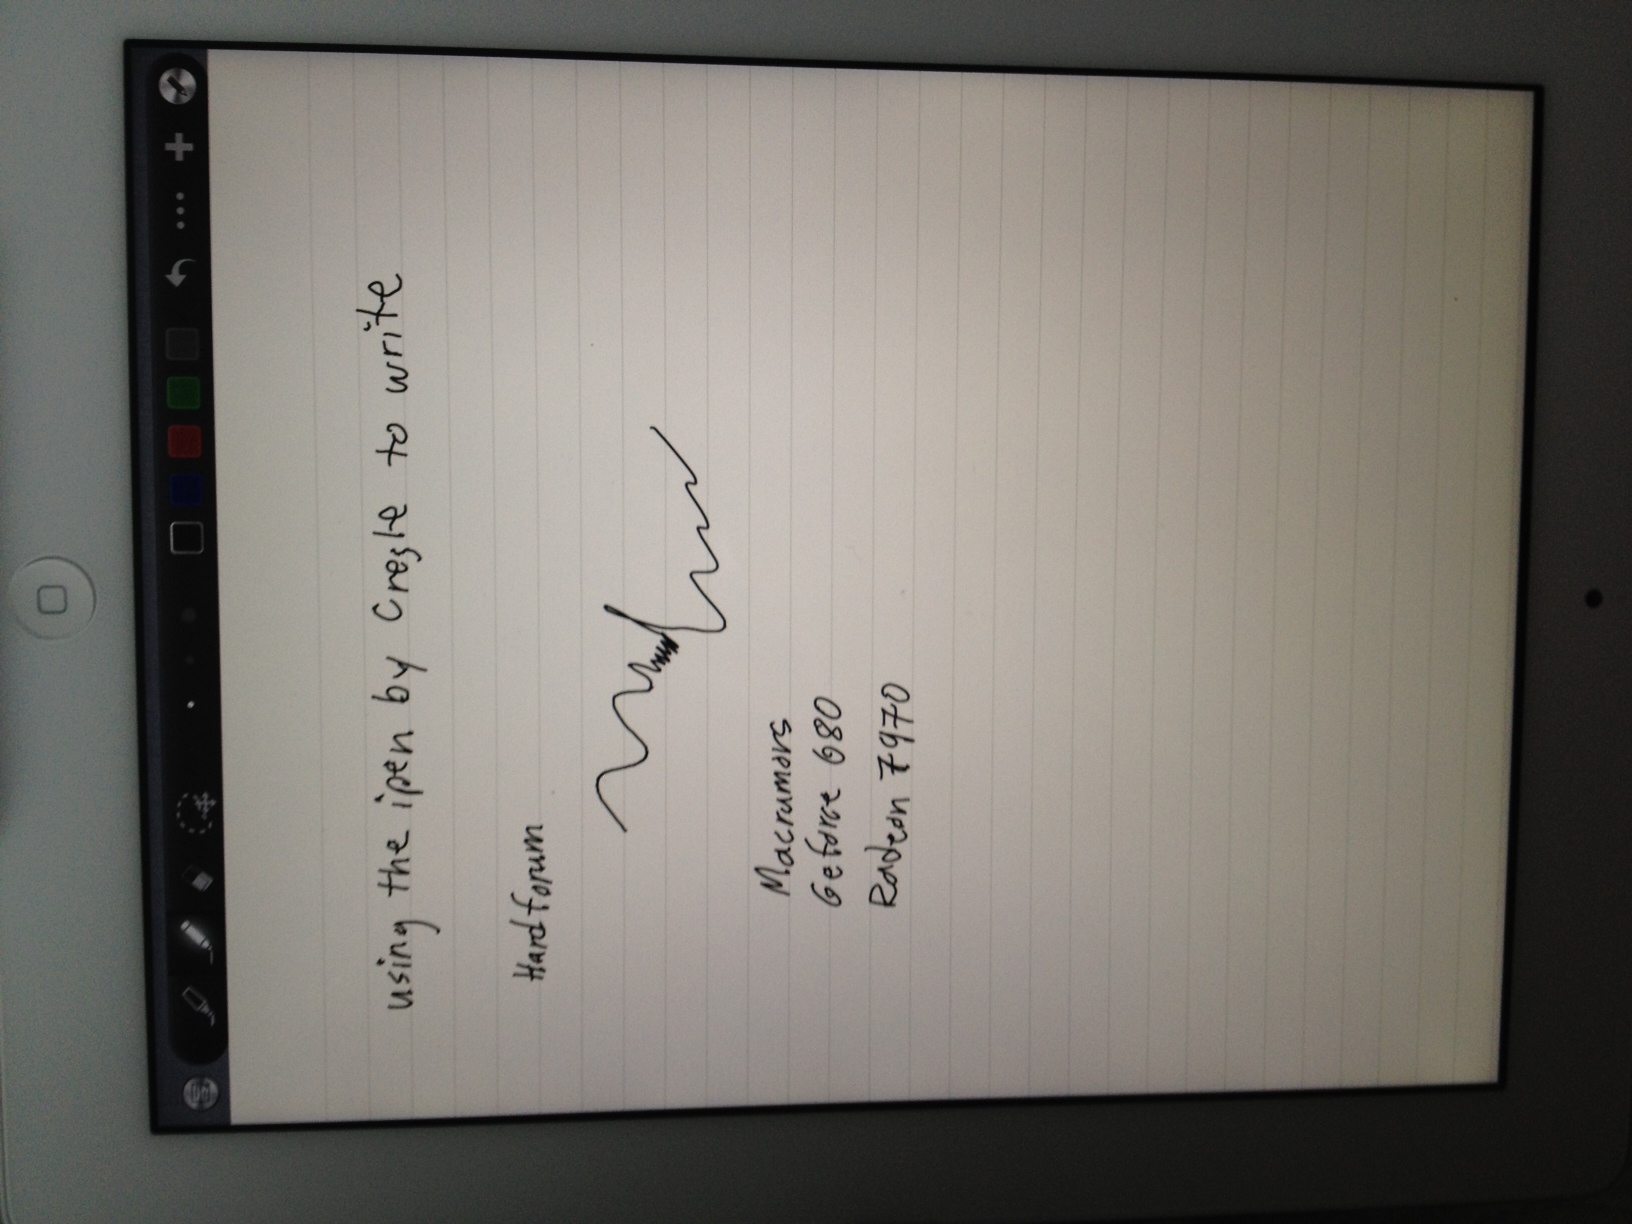 using the ipen by Cregle to write
Hardforum
Macrumors
Geforce 680
Radeon 7970